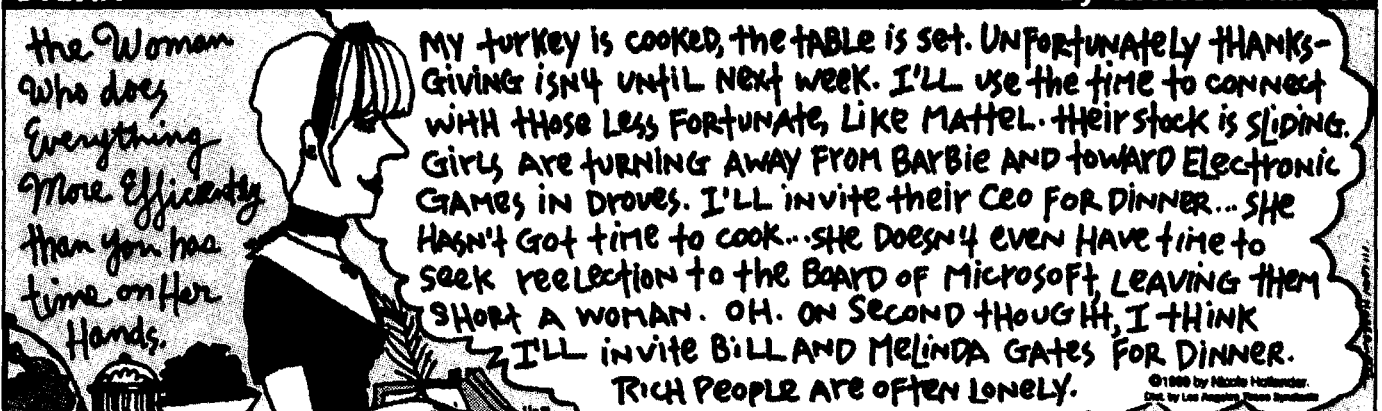 the Woman
Who does
Everything
More Efficiently
than you has
time on Her
Hands.
My turkey is cooked, the table is set. Unfortunately Thanks-
giving isn't until next week. I'll use the time to connect
with those less fortunate, like Mattel. Their stock is sliding.
Girls are turning away from Barbie and toward electronic
games in droves. I'll invite their CEO for dinner... she
hasn't got time to cook... she doesn't even have time to
seek reelection to the Board of Microsoft, leaving them
short a woman. Oh. On second thought, I think
I'll invite Bill and Melinda Gates for dinner.
Rich people are often lonely.
by Nicole Hollander.
Dist. by Los Angeles Times Syndicate